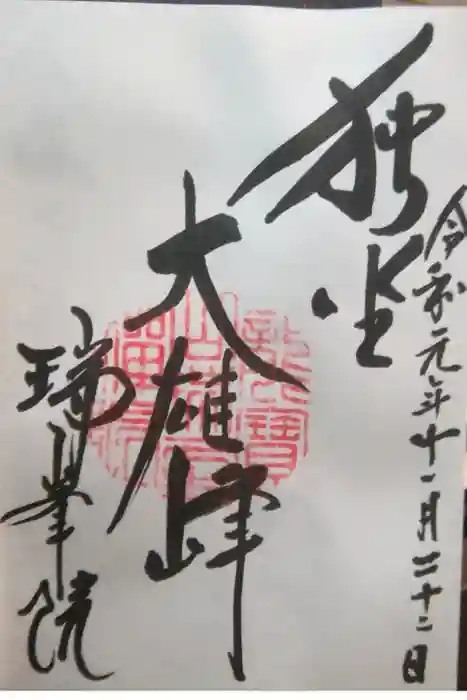 令和元年十一月二十二日
独坐
大雄峰
瑞峯院
龍寶